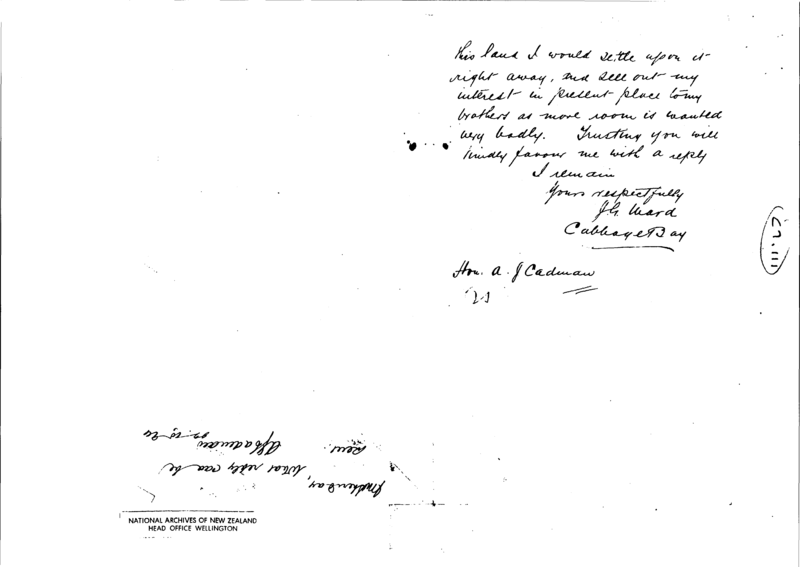 this land I would settle upon it
right away, and sell out my
interest in present place to my
brothers as more room is wanted
very badly. Trusting you will
kindly favour me with a reply
I remain
Yours respectfully
J G Ward
Cabbage Bay
Hon. A. J Cadman
What reply can be
sent.
AJCadman
NATIONAL ARCHIVES OF NEW ZEALAND
HEAD OFFICE WELLINGTON